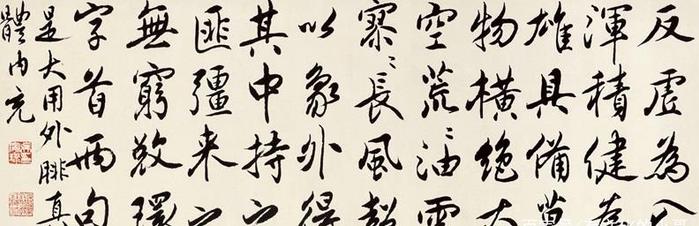 反虛為入
渾積健為
雄具備萬
物橫絕太
空荒〻油雲
寥〻長風超
以象外得
其中持之
匪彊来之
無窮敚環
字首兩句
是大用外腓真
體内充